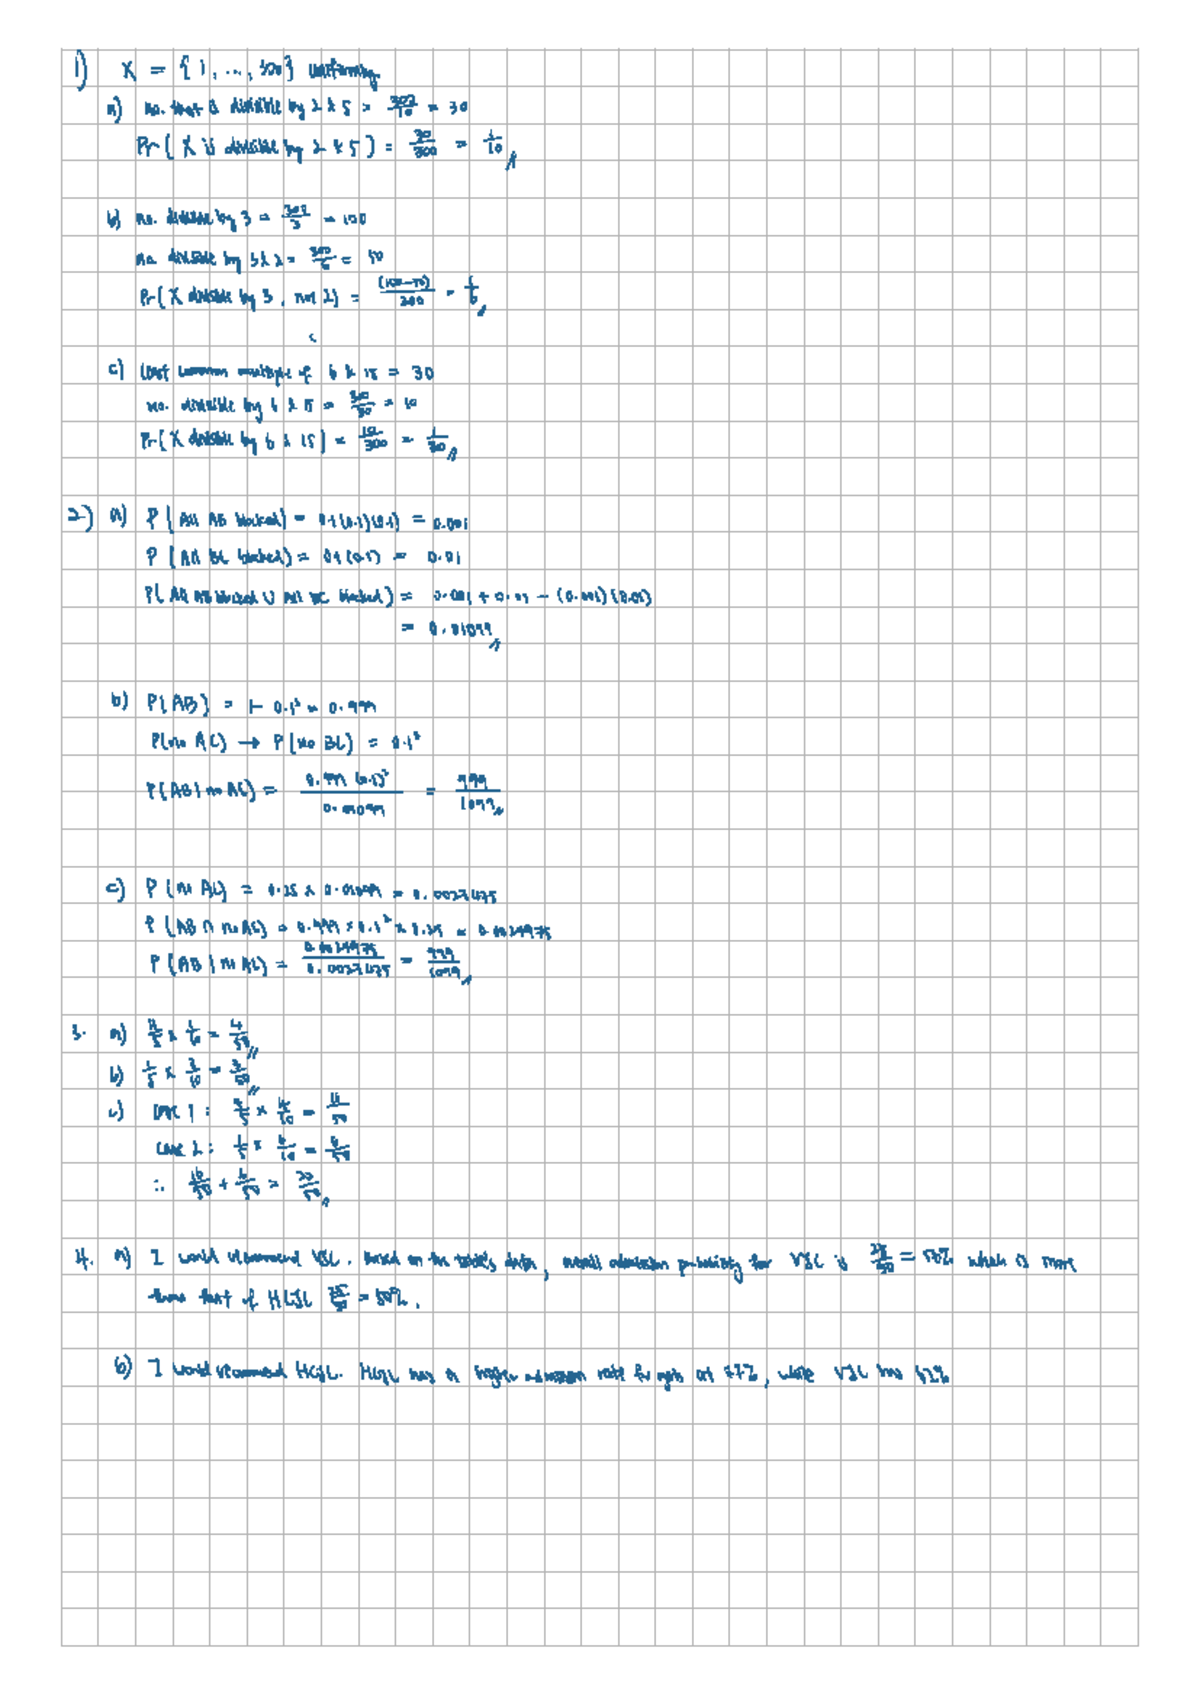 1) X = {1, ..., 300} uniformly
a) no. that is divisible by 2 & 5 = 300/10 = 30
Pr( X is divisible by 2 & 5 ) = 30/300 = 1/10
b) no. divisible by 3 = 300/3 = 100
no. divisible by 3 & 2 = 300/6 = 50
Pr( X divisible by 3, not 2) = (100-50)/300 = 1/6
c) least common multiple of 6 & 15 = 30
no. divisible by 6 & 15 = 300/30 = 10
Pr( X divisible by 6 & 15 ) = 10/300 = 1/30
2) a) P( All AB blocked) = 0.1(0.1)(0.1) = 0.001
P (All BC blocked) = 0.1(0.1) = 0.01
P( All AB blocked ∪ All BC blocked) = 0.001 + 0.01 - (0.001)(0.01)
= 0.01099
b) P(AB) = 1- 0.1³ = 0.999
P(no AC) → P(no BC) = 0.1²
P(AB | no AC) = 0.999 (0.1)²/0.01099 = 999/1099
c) P (no AC) = 0.25 x 0.01099 = 0.0027475
P (AB ∩ no AC) = 0.999 x 0.1² x 0.25 = 0.0024975
P (AB | no AC) = 0.0024975/0.0027475 = 999/1099
3. a) 4/5 x = 4/50
b) 1/5 x 3/10 = 3/50
c) case 1: 4/5 x 4/10 = 16/50
case 2: 1/5 x
∴ 16/50 +
4. a) I would recommend VJC. Based on the table's data, overall admission probability for VJC is = which is more
than that of HCJC = 50%.
b) I would recommend HCJC. HCJC has a higher admission rate for at, while VJC has